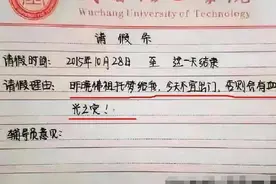 Wuchang University of Technology
请假条
请假时间: 2015年10月28日 至 这一天结束
请假理由: 昨晚佛祖托梦给我,今天不宜出门,否则会有血
光之灾!
辅导员意见: